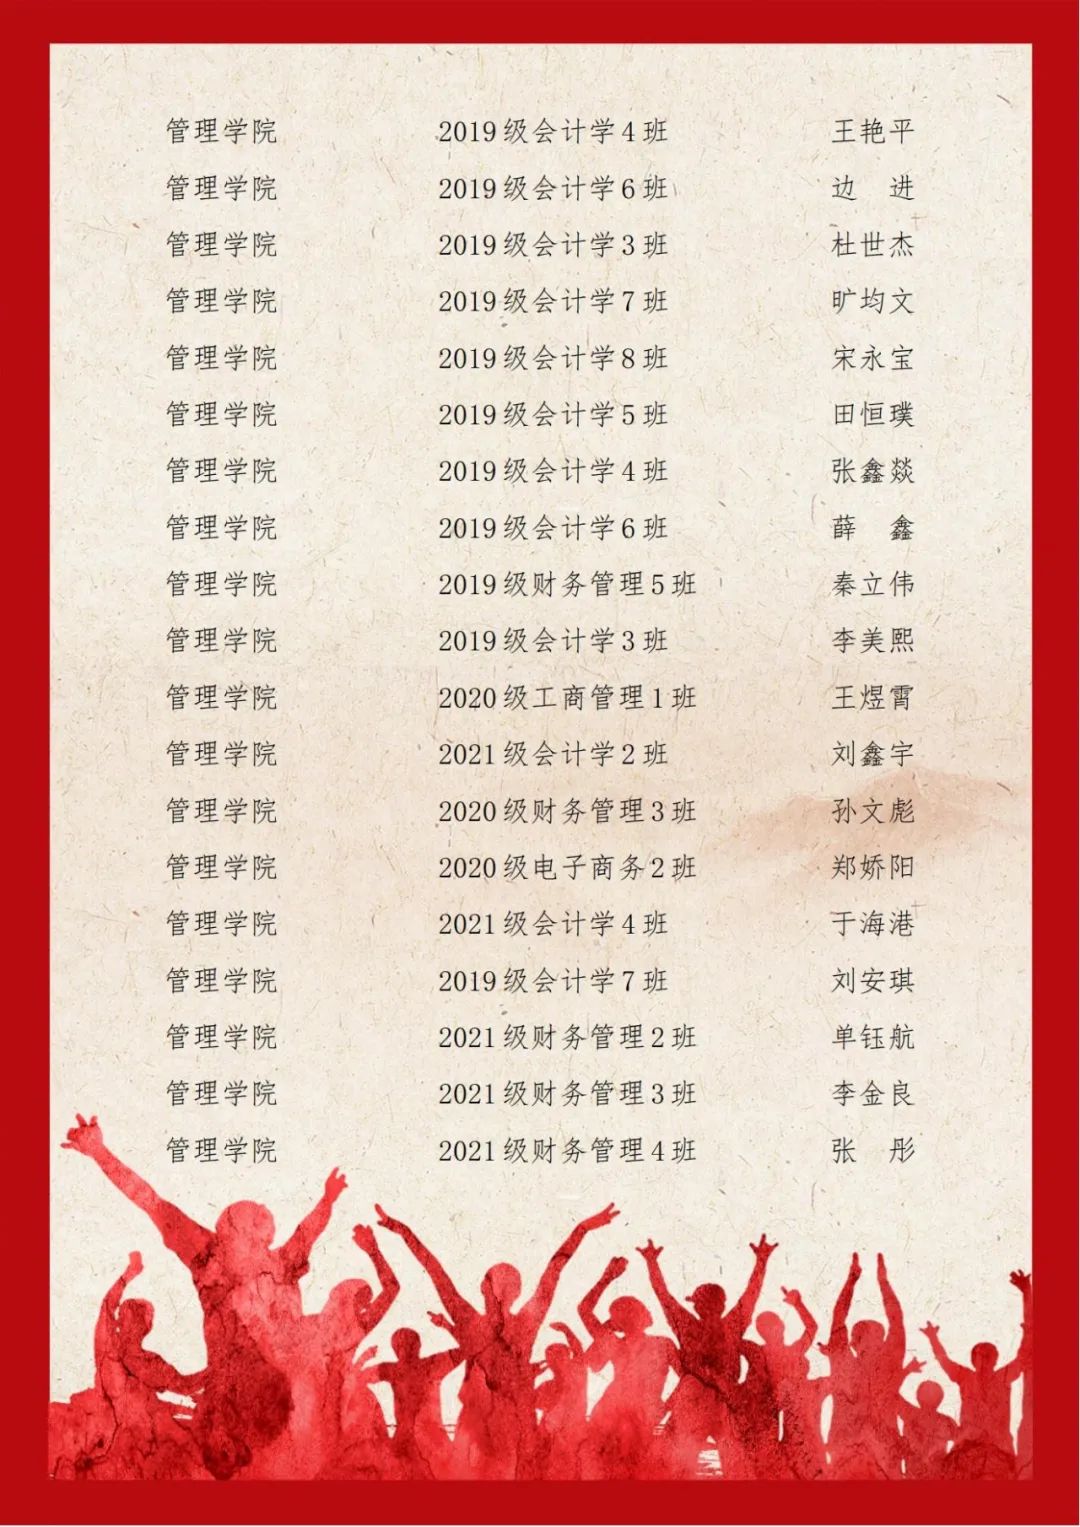 管理学院 2019级会计学4班 王艳平
管理学院 2019级会计学6班 边 进
管理学院 2019级会计学3班 杜世杰
管理学院 2019级会计学7班 旷均文
管理学院 2019级会计学8班 宋永宝
管理学院 2019级会计学5班 田恒璞
管理学院 2019级会计学4班 张鑫燚
管理学院 2019级会计学6班 薛 鑫
管理学院 2019级财务管理5班 秦立伟
管理学院 2019级会计学3班 李美熙
管理学院 2020级工商管理1班 王煜霄
管理学院 2021级会计学2班 刘鑫宇
管理学院 2020级财务管理3班 孙文彪
管理学院 2020级电子商务2班 郑娇阳
管理学院 2021级会计学4班 于海港
管理学院 2019级会计学7班 刘安琪
管理学院 2021级财务管理2班 单钰航
管理学院 2021级财务管理3班 李金良
管理学院 2021级财务管理4班 张 彤